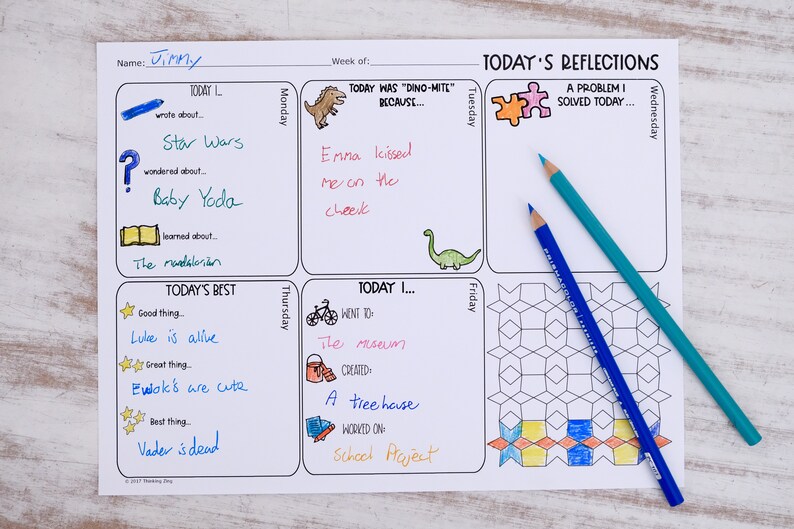 Name: Jimmy Week of: TODAY'S REFLECTIONS
Monday
TODAY I...
wrote about...
Star Wars
wondered about...
Baby Yoda
learned about...
The mandalorian
Tuesday
TODAY WAS "DINO-MITE"
BECAUSE...
Emma kissed
me on the
cheek
Wednesday
A PROBLEM I
SOLVED TODAY...
Thursday
TODAY'S BEST
Good thing...
Luke is alive
Great thing...
Ewok's are cute
Best thing...
Vader is dead
Friday
TODAY I...
WENT TO:
The museum
CREATED:
A treehouse
WORKED ON:
School Project
© 2017 Thinking Zing
PRISMACOLOR